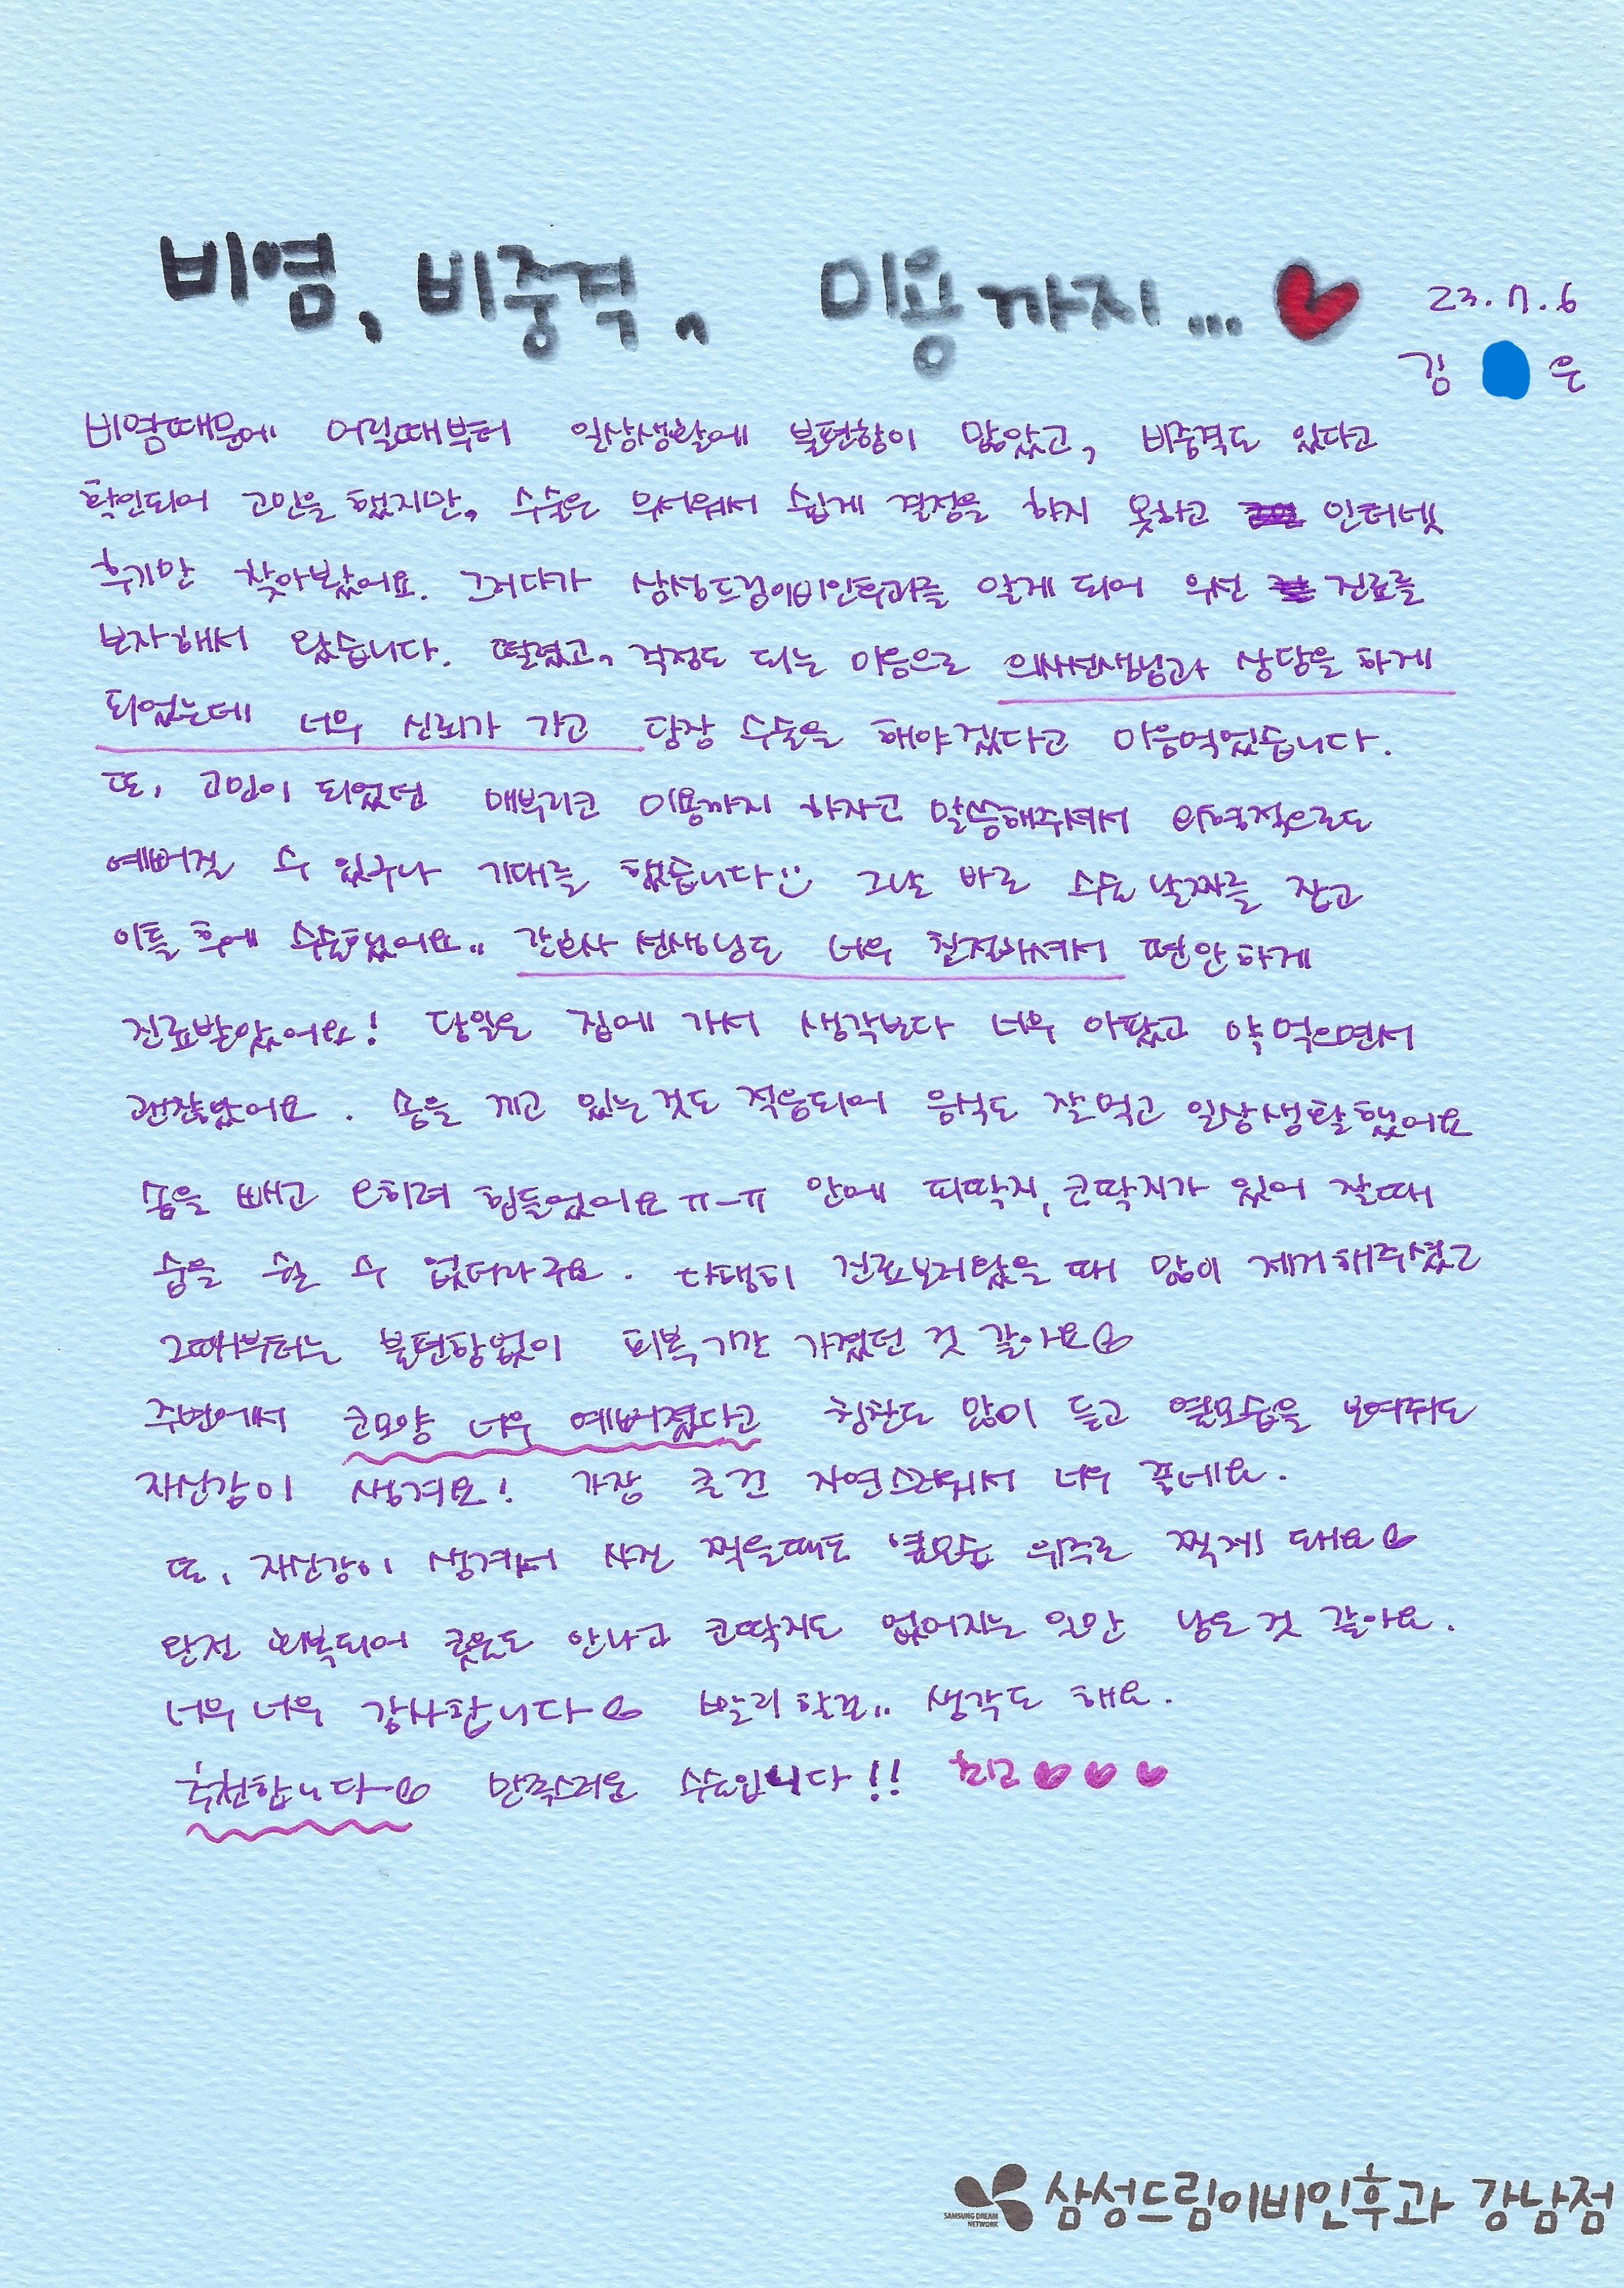 비염, 비중격, 미용까지... ♥
23. 7. 6
김 은
비염때문에 어릴때부터 일상생활에 불편함이 많았고, 비중격도 있다고
확인되어 고민을 했지만, 수술은 무서워서 쉽게 결정을 하지 못하고 인터넷
후기만 찾아봤어요. 그러다가 삼성드림이비인후과를 알게 되어 우선 진료를
보자해서 왔습니다. 떨렸고, 걱정도 되는 마음으로 의사선생님과 상담을 하게
되었는데 너무 신뢰가 가고 당장 수술을 해야겠다고 마음먹었습니다.
또, 고민이 되었던 매부리코 미용까지 하자고 말씀해주셔서 외형적으로도
예뻐질 수 있구나 기대를 했습니다:) 그날 바로 수술 날짜를 잡고
이틀 후에 수술했어요.. 간호사 선생님도 너무 친절하셔서 편안하게
진료받았어요! 당일은 집에 가서 생각보다 너무 아팠고 약 먹으면서
괜찮았어요. 솜을 끼고 있는것도 적응되어 음식도 잘먹고 일상생활했어요
솜을 빼고 오히려 힘들었어요 ㅠ-ㅠ 안에 피딱지, 코딱지가 있어 잘때
숨을 쉴 수 없더라구요. 다행히 진료보러왔을 때 많이 제거해주셨고
그때부터는 불편함없이 회복기간 가졌던 것 같아요
주변에서 코모양 너무 예뻐졌다고 칭찬도 많이 듣고 옆모습을 보여줘도
자신감이 생겨요! 가장 좋은건 자연스러워서 너무 좋네요.
또, 자신감이 생겨서 사진 찍을때도 옆모습 위주로 찍게 돼요
완전 회복되어 콧물도 안나고 코딱지도 없어지는 일만 남은 것 같아요.
너무 너무 감사합니다 빨리 할걸.. 생각도 해요.
추천합니다 만족스러운 수술입니다!! 최고♥♥♥
SAMSUNG DREAM
NETWORK
삼성드림이비인후과 강남점